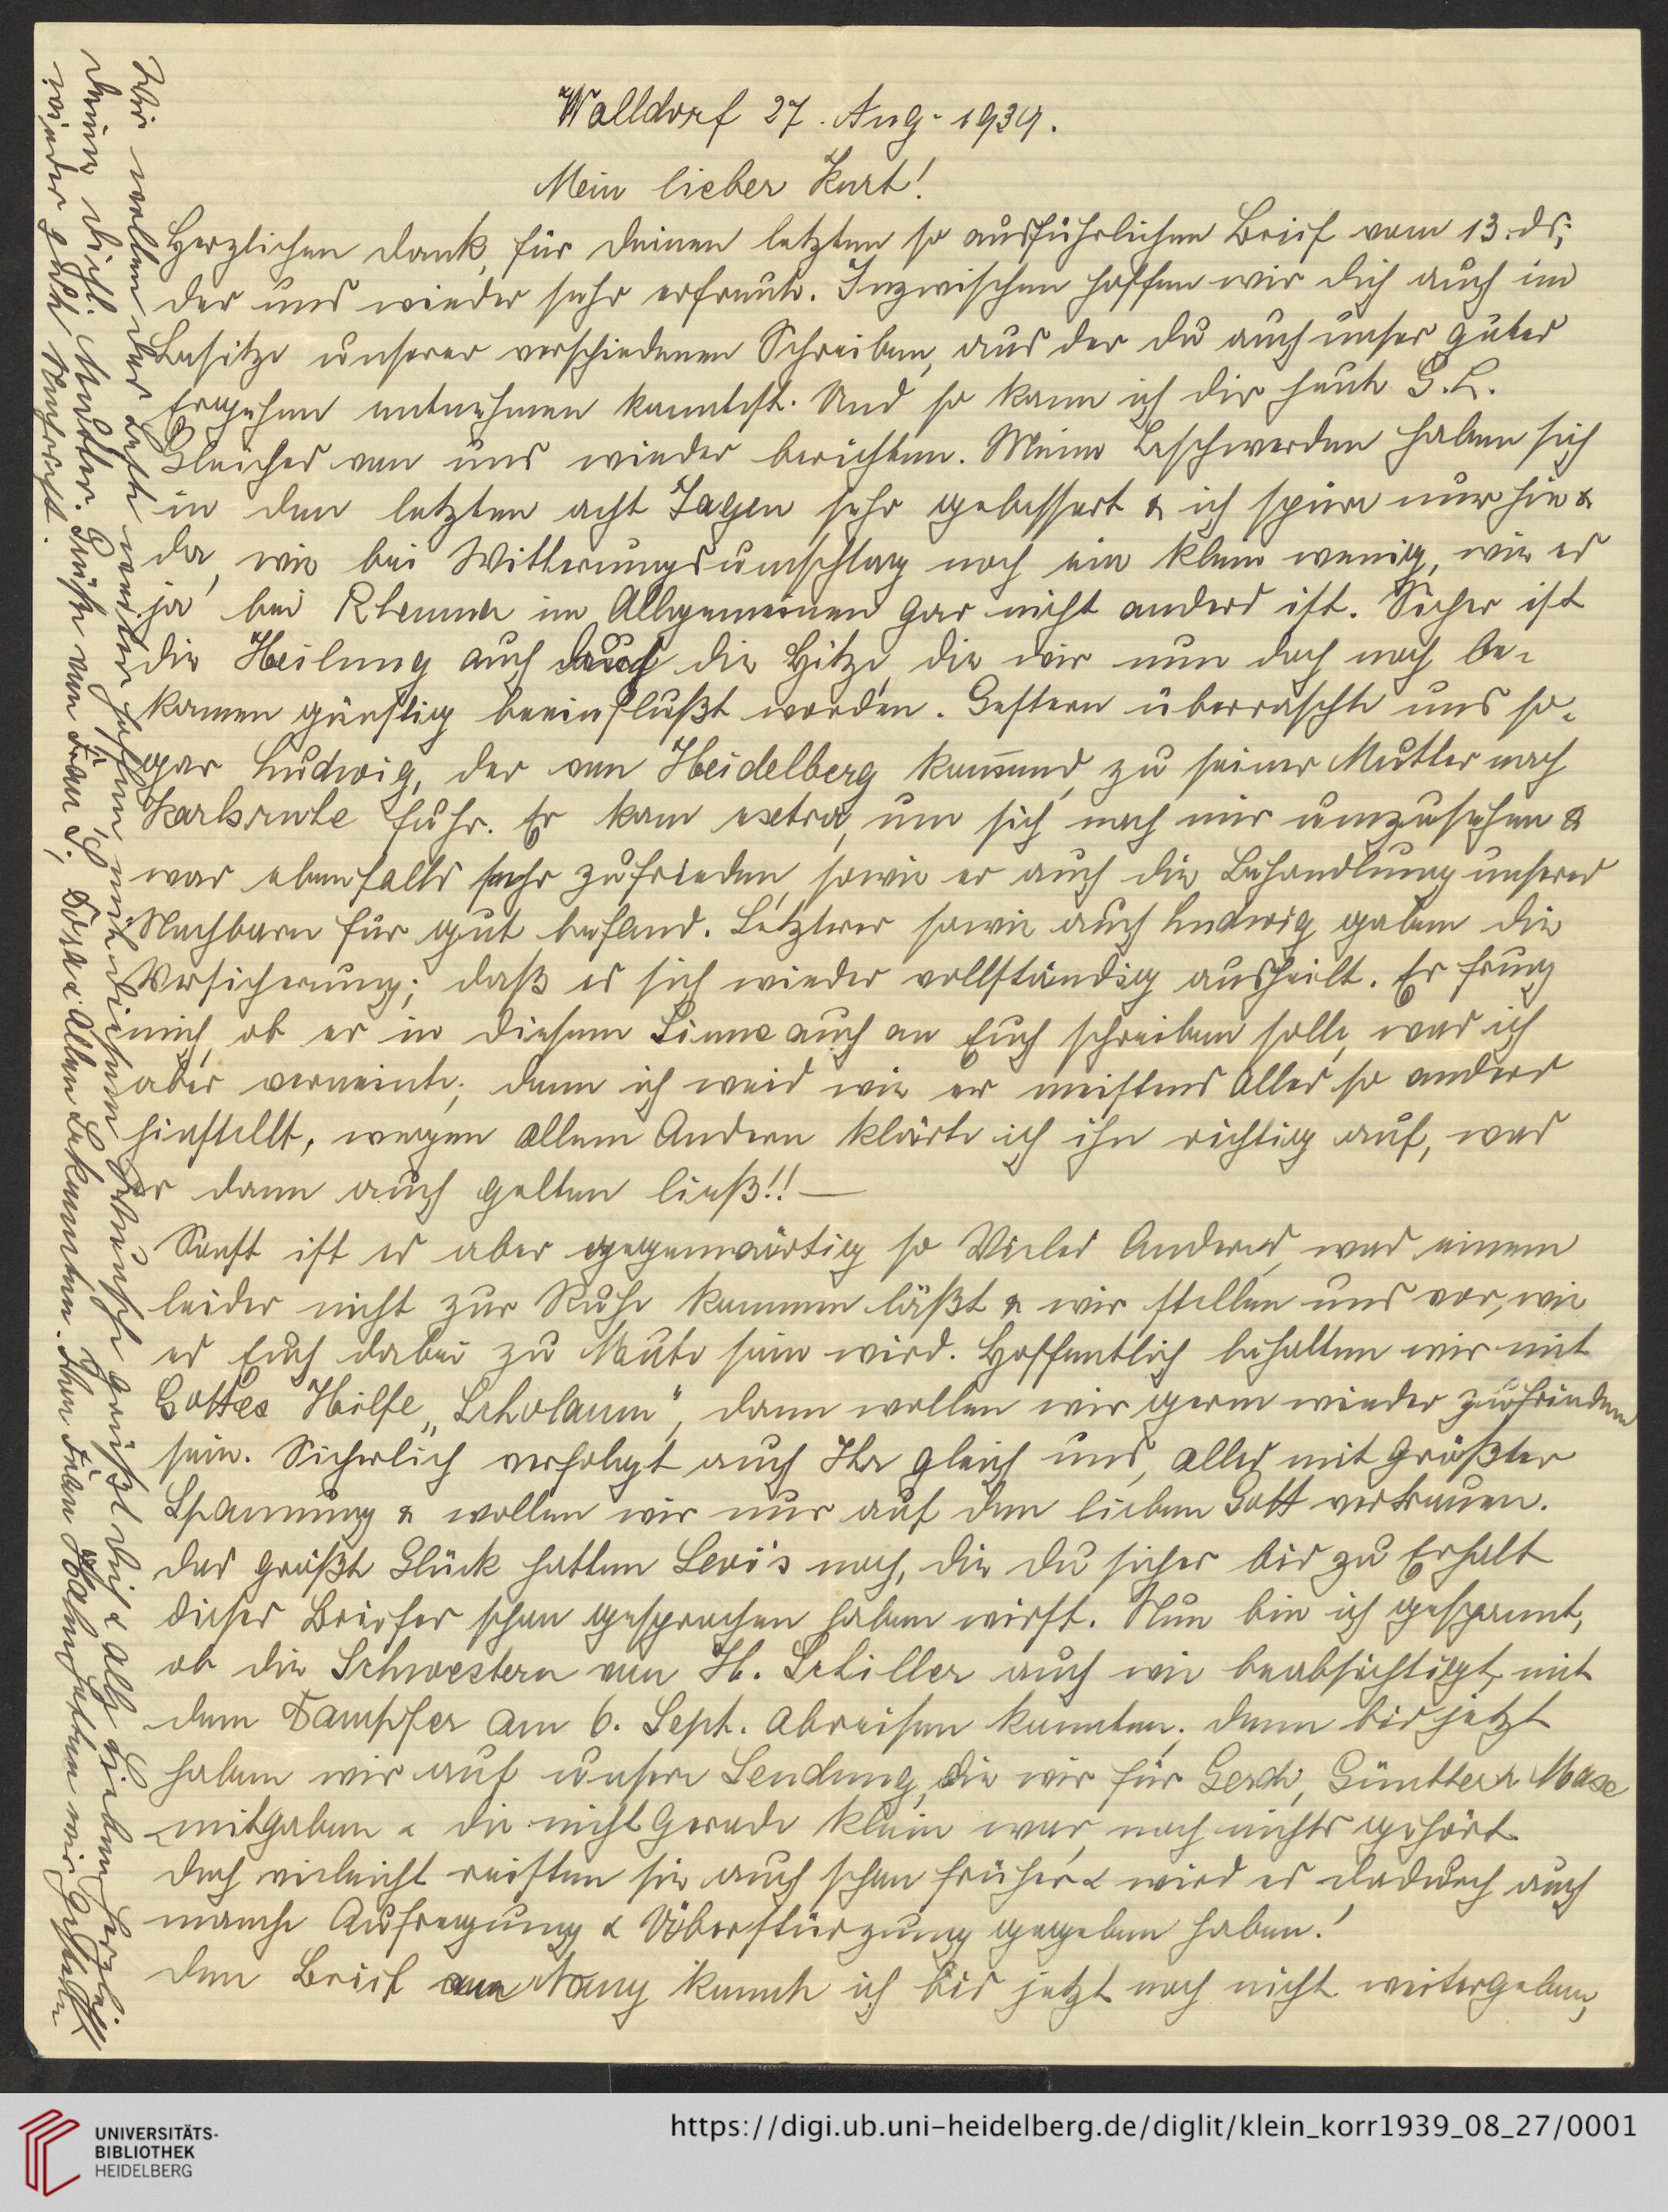 Walldorf 27. Aug. 1939.
Mein lieber Kurt!
Herzlichen Dank, für Deinen letzten so ausführlichen Brief vom 13. ds,
der uns wieder sehr erfreute. Inzwischen hoffen wir Dich auch im
Besitze unserer verschiedenen Schreiben, aus der Du auch unser gutes
Ergehen entnehmen konntest. Und so kann ich Dir heute G. L.
Gleiches von uns wieder berichten. Meine Beschwerden haben sich
in den letzten acht Tagen sehr gebessert & ich spüre nur hie &
da, wie bei Witterungsumschlag noch ein klein wenig, wie es
ja bei Rheuma im Allgemeinen gar nicht anders ist. Sicher ist
die Heilung auch durch die Hitze, die wir nun doch noch be-
kamen günstig beeinflußt worden. Gestern überraschte uns so-
gar Ludwig, der von Heidelberg kommend, zu seiner Mutter nach
Karlsruhe fuhr. Er kam extra, um sich nach mir umzusehen &
war ebenfalls sehr zufrieden, sowie er auch die Behandlung unseres
Nachbarn für gut befand. Letzterer sowie auch Ludwig gaben die
Versicherung; daß es sich wieder vollständig ausheilt. Er frug
mich, ob er in diesem Sinne auch an Euch schreiben solle, was ich
aber verneinte; denn ich weis wie er meistens Alles so anders
hinstellt, wegen allem Andern klärte ich ihn richtig auf, was
er dann auch gelten ließ!! —
Sonst ist es aber gegenwärtig so Vieles Anderes, was einem
leider nicht zur Ruhe kommen läßt & wir stellen uns vor, wie
es Euch dabei zu Mute sein wird. Hoffentlich behalten wir mit
Gottes Hilfe „Scholaum", dann wollen wir gern wieder zufrieden
sein. Sicherlich verfolgt auch Ihr gleich uns, alles mit größter
Spannung & wollen wir nur auf den lieben Gott vertrauen.
Das größte Glück hatten Levi's noch, die Du sicher bis zu Erhalt
dieses Briefes schon gesprochen haben wirst. Nun bin ich gespannt,
ob die Schwestern von H. Schiller auch wie beabsichtigt, mit
dem Dampfer am 6. Sept. abreisen konnten; denn bis jetzt
haben wir auf unsere Sendung, die wir für Gerdi, Günther & Max
mitgaben & die nicht gerade klein war, noch nichts gehört.
Doch vieleicht reisten sie auch schon früher & wird es dadurch auch
manche Aufregung & Überstürzung gegeben haben!
Den Brief an Nany konnte ich bis jetzt noch nicht weitergeben,
Wir wollen das Beste weiter hoffen, mit diesem Wunsche grüßt Dich & alle Lieben herzlichst
Deine Dich l. Mutter. Grüße von Frau S., Dora & allen Bekannten. Von Frau Kahn hatten wir gestern
wieder gute Nachricht.
UNIVERSITÄTS-
BIBLIOTHEK
HEIDELBERG
https://digi.ub.uni-heidelberg.de/diglit/klein_korr1939_08_27/0001